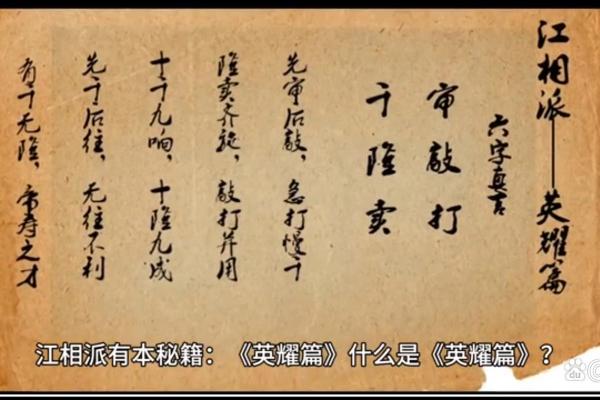 江相派——英耀篇
六字真言
审敲打
千隆卖
先审后敲，急打慢千
隆卖齐施，敲打并用
十千九响，十隆九成
先千后往，无往不利
有千无隆，帝寿之才
江相派有本秘籍：《英耀篇》什么是《英耀篇》？
du